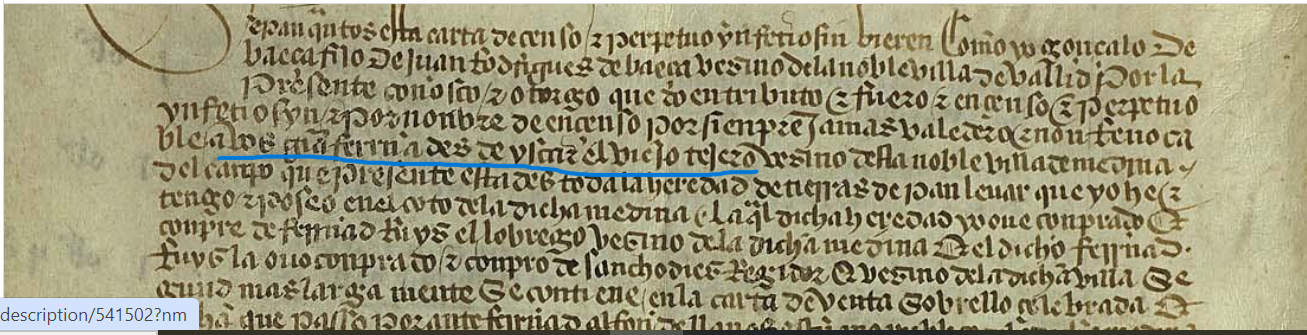 Sepan qntos esta carta de censo z perpetuo ynfetiosin vieren Como yo gonçalo De
baeça fijo De Juan Rodrigues de baeça vesino dela noble villa de vallid Por la
Presente conosco z otorgo que do en tributo z fuero z en censo z Perpetuo
ynfetiosyn z Por nonbre de encenso Por sienpre Jamas valedero z non Revoca
ble a vos ferrnades de el viejo tejero vesino desta noble villa de medina
del canpo que presente estades toda la heredad de tierras de pan leuar que yo he z
tengo z poseo en el coto dela dicha medina la ql dicha heredad yo oue conprado z
conpre de ferrnad Ruys el lobrego vesino dela dicha medina z el dicho ferrnad
Ruys la ouo conprado z conpro de sancho dies Regidor z vesino dela dicha villa Se
gund mas larga mente Se contiene en la carta de venta Sobrello celebrada
que passo por ante ferrnad alfon
description/541502?nm